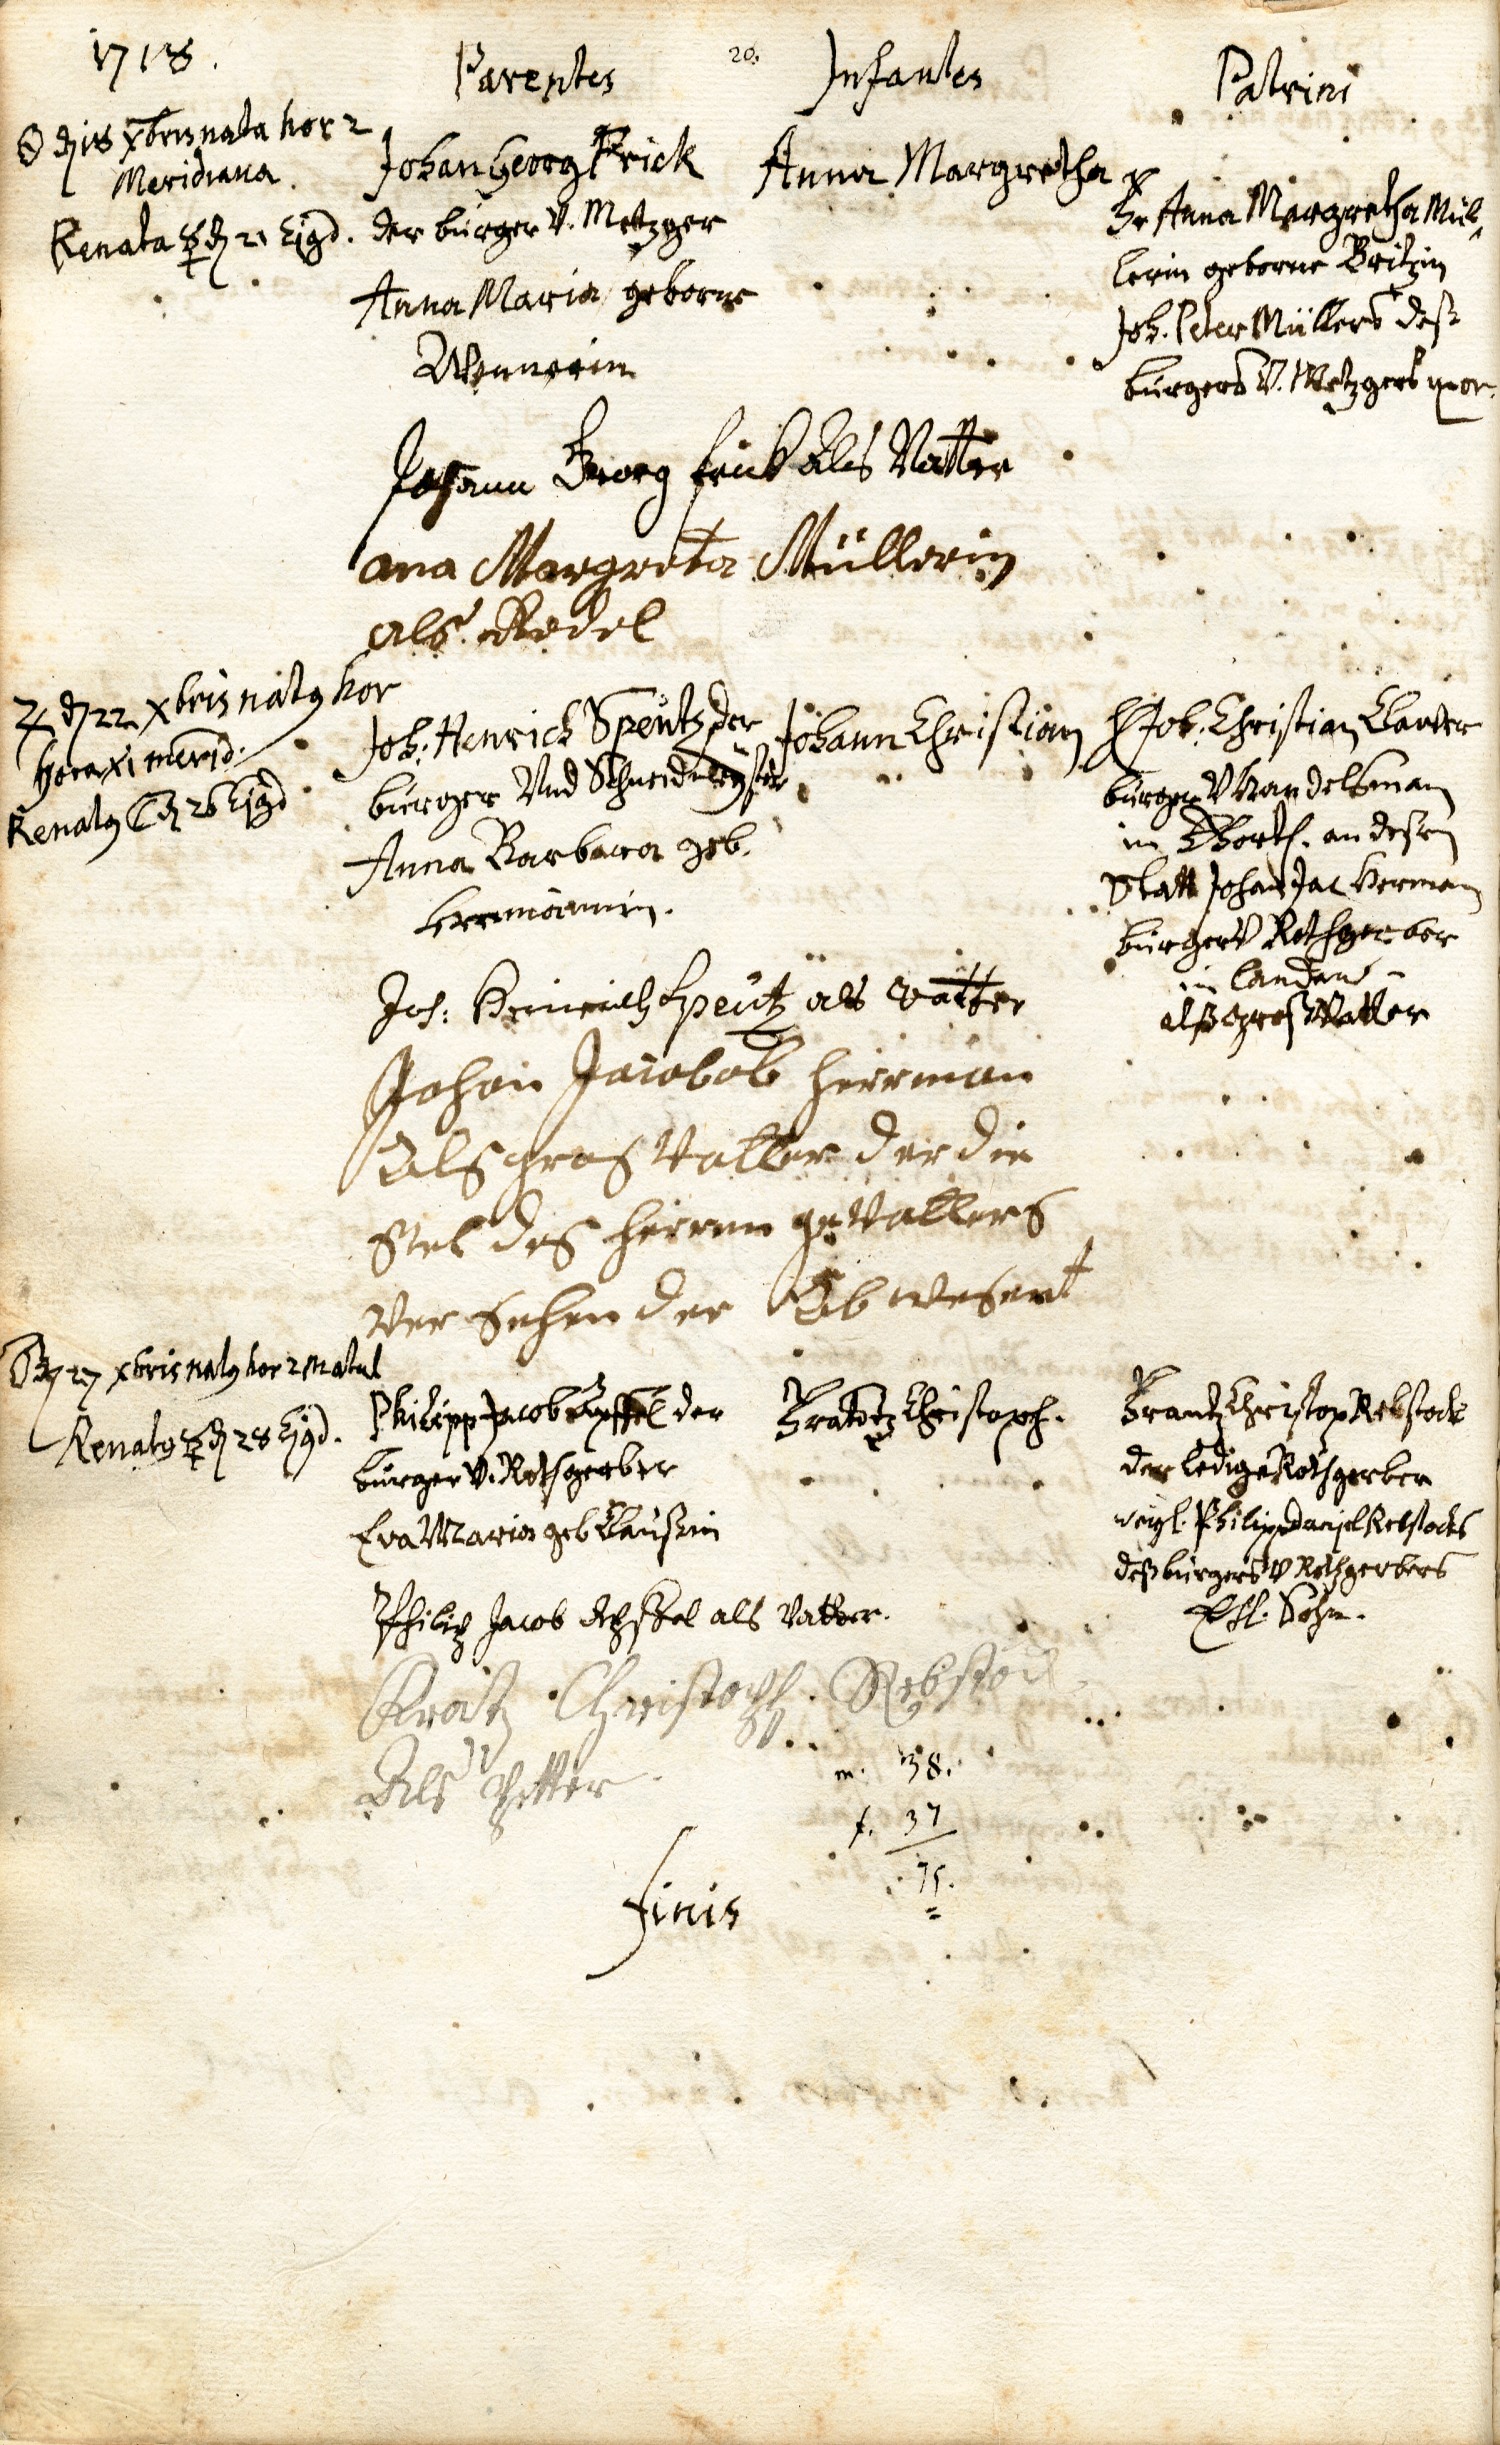 1718.
Parentes
20.
Infantes
Patrini
☉ d 18 Xbris nata hor 2
Meridiana.
Renata ☿ d 21 Ejusd.
Johan Georg Frick
der burger V. Metzger
Anna Maria geborne
Wennerin
Anna Margretha
Fr Anna Margretha Mül-
lerin geborne Britzin
Joh. Peter Müllers deß
burgers V. Metzgers uxor.
Johann Georg frick als Vatter
ana Margreta Müllerin
als Gedel
♃ d 22 Xbris natus hor
hora XI merid:
Renatus ☾ d 26 Ejusd
Joh: Henrich Speutz der
burger Vnd Schneid
Anna Barbara geb.
herrmännin.
Johann Christian
H Joh. Christian
burger V Handelsman
in Wörth. an deßen
Statt Johan Jac Herman
burger V Rothgerber
in landau
alß groß Vatter
Joh: Heinrich Speutz als Vatter
Johan Jacobob herrman
Als gros Vatter der die
Stel des herren geVatters
Ver sehen der Ab wesent
d 27 Xbris natus hor 2 matut
Renatus ☿ d 28 Ejusd.
Philipp Jacob der
burger V. Rothgerber
Eva Maria geb Claußin
Frantz Christoph.
Frantz Christop Rebstock
der ledige Rothgerber
weyl. Philipp Daniel Rebstocks
deß burgers V Rothgerbers
Ehl. Sohn.
Philip Jacob als Vatter.
Frantz Christoph Rebstock
Als Petter.
m. 38.
f. 37
75.
finis